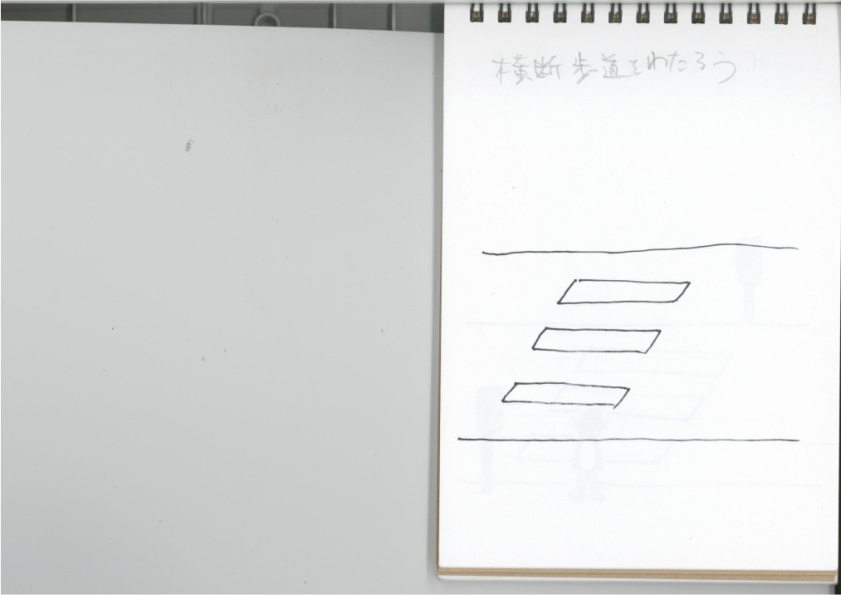 横断歩道をわたろう